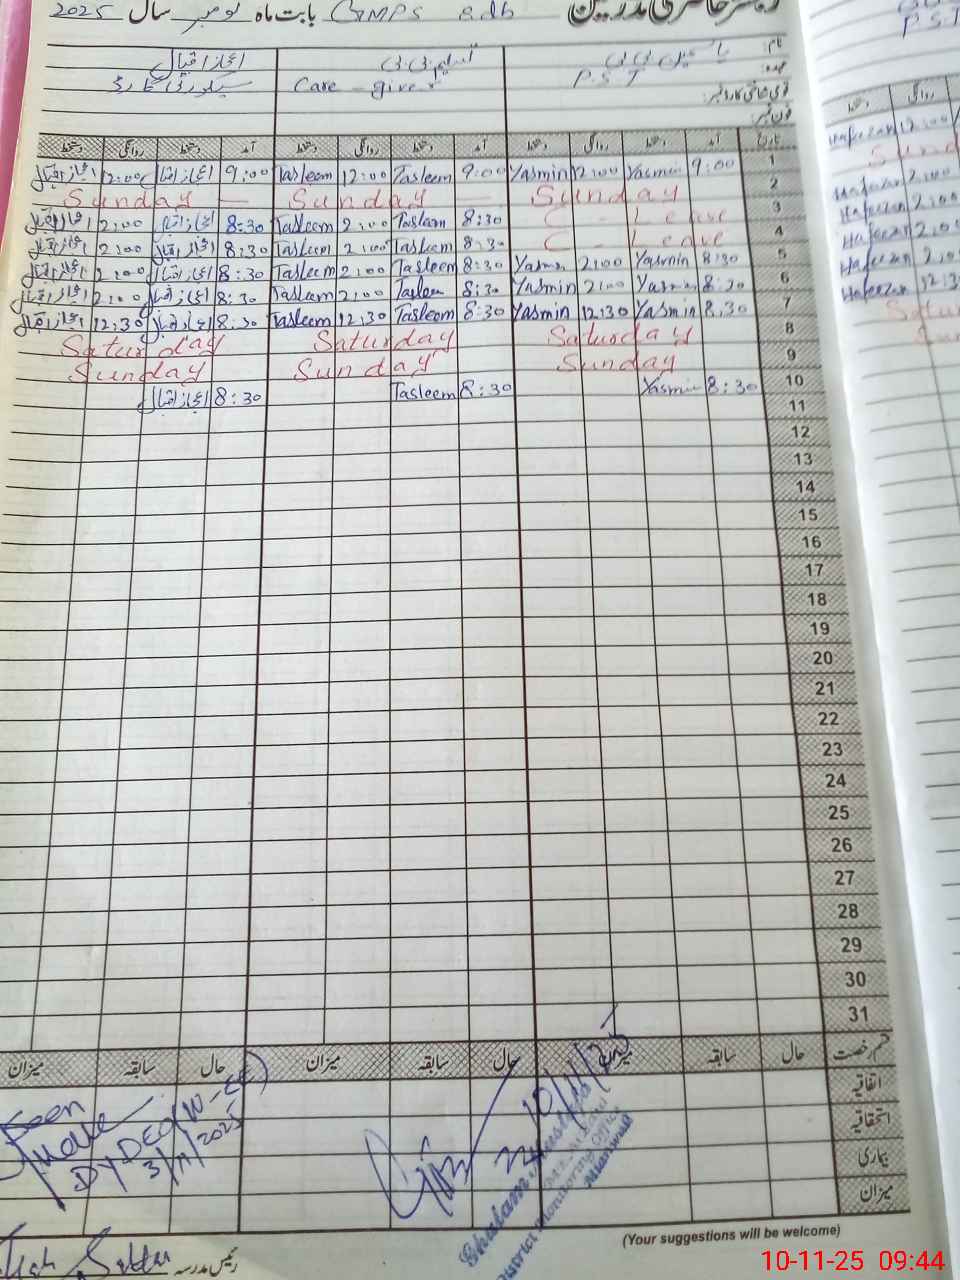 رجسٹر حاضری مدرسین GMPS adh بابت ماہ نومبر سال 2025
نام: یاسمین بی بی تسلیم بی بی اعجاز اقبال
عہدہ: P.S.T Care-giver سیکورٹی گارڈ
قومی شناختی کارڈ نمبر:
فون نمبر:
تاریخ آمد دستخط روانگی دستخط آمد دستخط روانگی دستخط آمد دستخط روانگی دستخط
1 9:00 Yasmin 12:00 Yasmin 9:00 Tasleem 12:00 Tasleem 9:00 اعجاز اقبال 12:00 اعجاز اقبال
2 Sunday — Sunday — Sunday
3 C - Leave 8:30 Tasleem 2:00 Tasleem 8:30 اعجاز اقبال 2:00 اعجاز اقبال
4 C - Leave 8:30 Tasleem 2:00 Tasleem 8:30 اعجاز اقبال 2:00 اعجاز اقبال
5 8:30 Yasmin 2:00 Yasmin 8:30 Tasleem 2:00 Tasleem 8:30 اعجاز اقبال 2:00 اعجاز اقبال
6 8:30 Yasmin 2:00 Yasmin 8:30 Tasleem 2:00 Tasleem 8:30 اعجاز اقبال 2:00 اعجاز اقبال
7 8:30 Yasmin 12:30 Yasmin 8:30 Tasleem 12:30 Tasleem 8:30 اعجاز اقبال 12:30 اعجاز اقبال
8 Saturday Saturday Saturday
9 Sunday Sunday Sunday
10 8:30 Yasmin 8:30 Tasleem 8:30 اعجاز اقبال
11
12
13
14
15
16
17
18
19
20
21
22
23
24
25
26
27
28
29
30
31
قسم رخصت حال سابقہ میزان حال سابقہ میزان حال سابقہ میزان
اتفاقیہ
استحقاقیہ
بیماری
میزان
Seen
DYDEO(W-EE)
3/11/2025
10/11/25
Ghulam
District Monitoring Officer
Mianwali
(Your suggestions will be welcome)
رئیس مدرسہ
P.S.T
روانگی
Hafeezan 12:00
Hafeezan 2:00
Hafeezan 2:00
Hafeezan 2:00
Hafeezan 2:00
Hafeezan 12:3
10-11-25 09:44